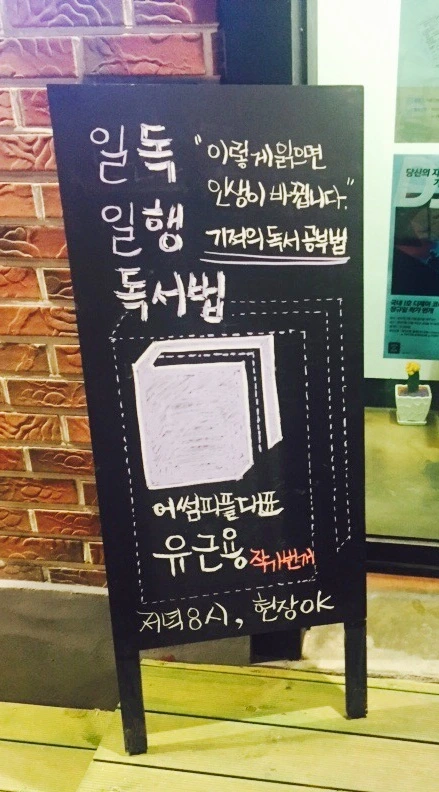 일독
일행
독서법
"이렇게 읽으면
인생이 바뀝니다."
기적의 독서 공부법
어썸피플 대표
유근용 작가번개
저녁 8시, 현장OK
당신의 지